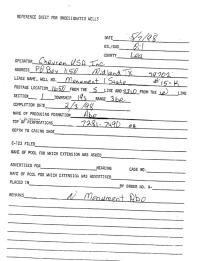 REFERENCE SHEET FOR UNDESIGNATED WELLS
DATE 5/7/98
OIL/GAS Oil
COUNTY Lea
OPERATOR Chevron USA Inc
ADDRESS P O Box 1150 Midland Tx 79702
LEASE NAME, WELL NO. Monument 1 State #15-K
FOOTAGE LOCATION 1650 FROM THE S LINE AND FROM THE W LINE
SECTION 1 TOWNSHIP 19s RANGE 36e
COMPLETION DATE 2/3/98
NAME OF PRODUCING FORMATION Abo
TOP OF PERFORATIONS 7281-7490 OR
DEPTH TO CASING SHOE
C-123 FILED
NAME OF POOL FOR WHICH EXTENSION WAS ASKED
ADVERTISED FOR HEARING CASE NO.
NAME OF POOL FOR WHICH EXTENSION WAS ADVERTISED
PLACED IN BY ORDER NO. R-
REMARKS N Monument Abo